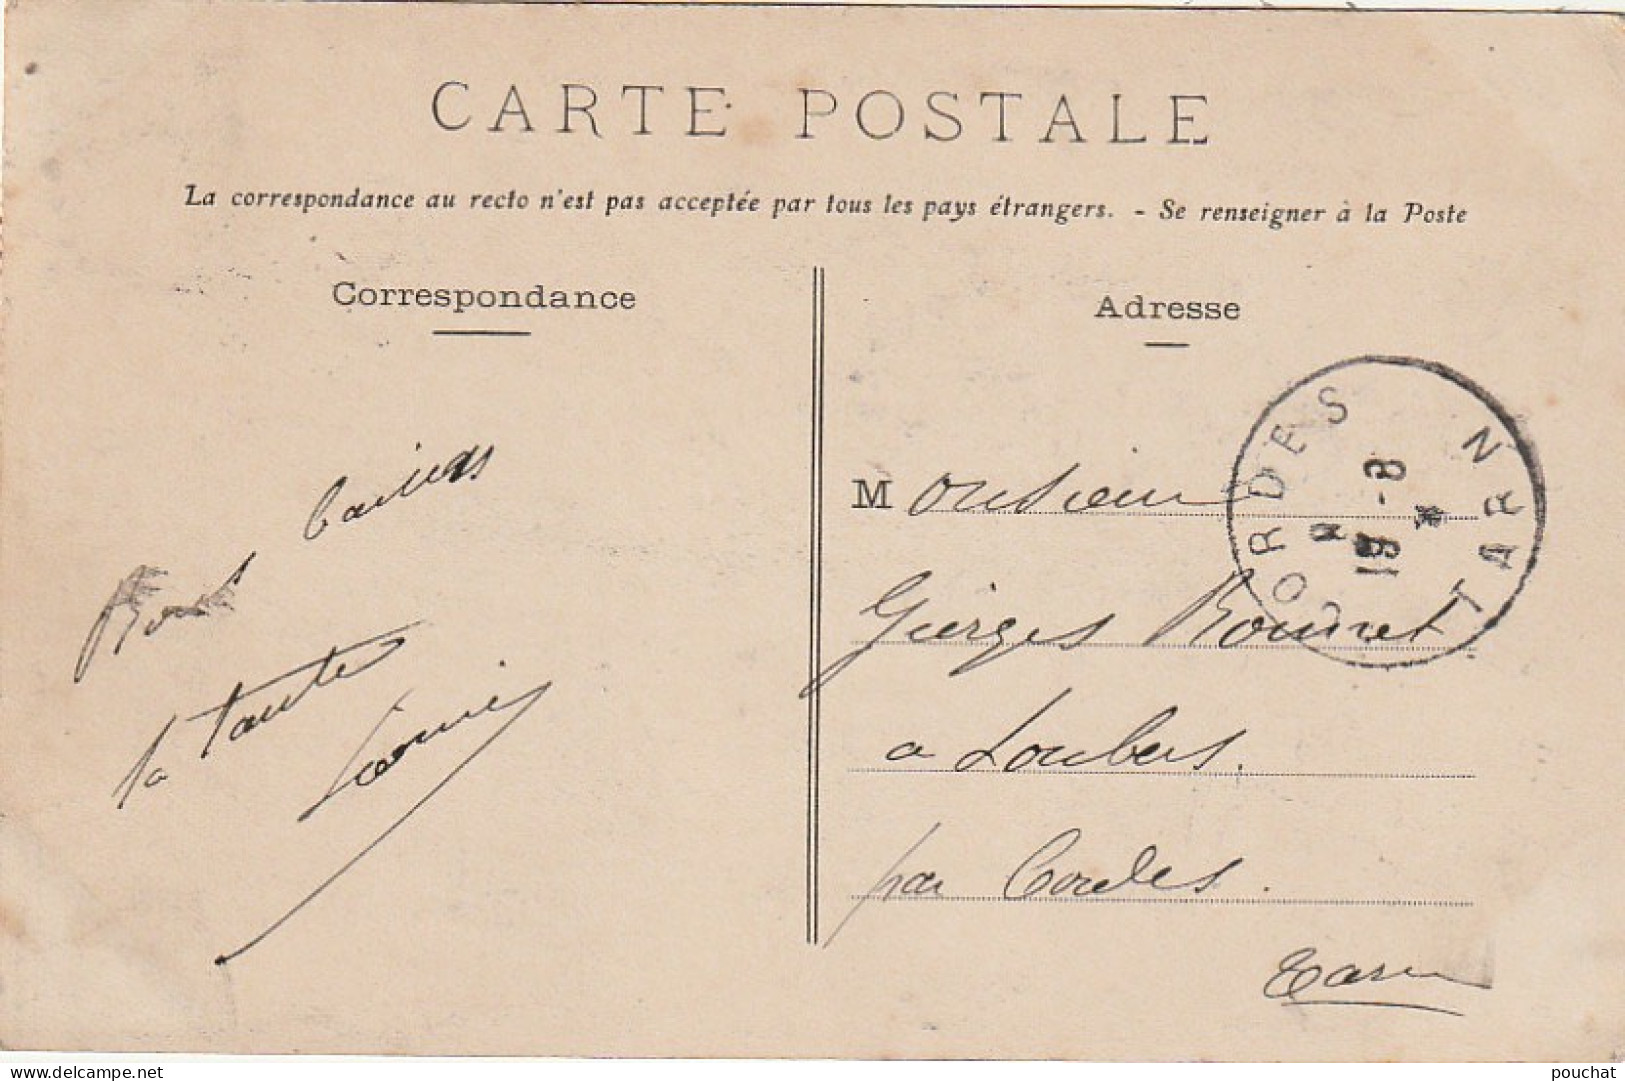 CARTE POSTALE
La correspondance au recto n'est pas acceptée par tous les pays étrangers. - Se renseigner à la Poste
Correspondance
Adresse
Bons baisers
ta tante
Monsieur
Georges Bonnet
a Loubers.
par Cordes.
Tarn
CORDES TARN
19 -8
pouchat